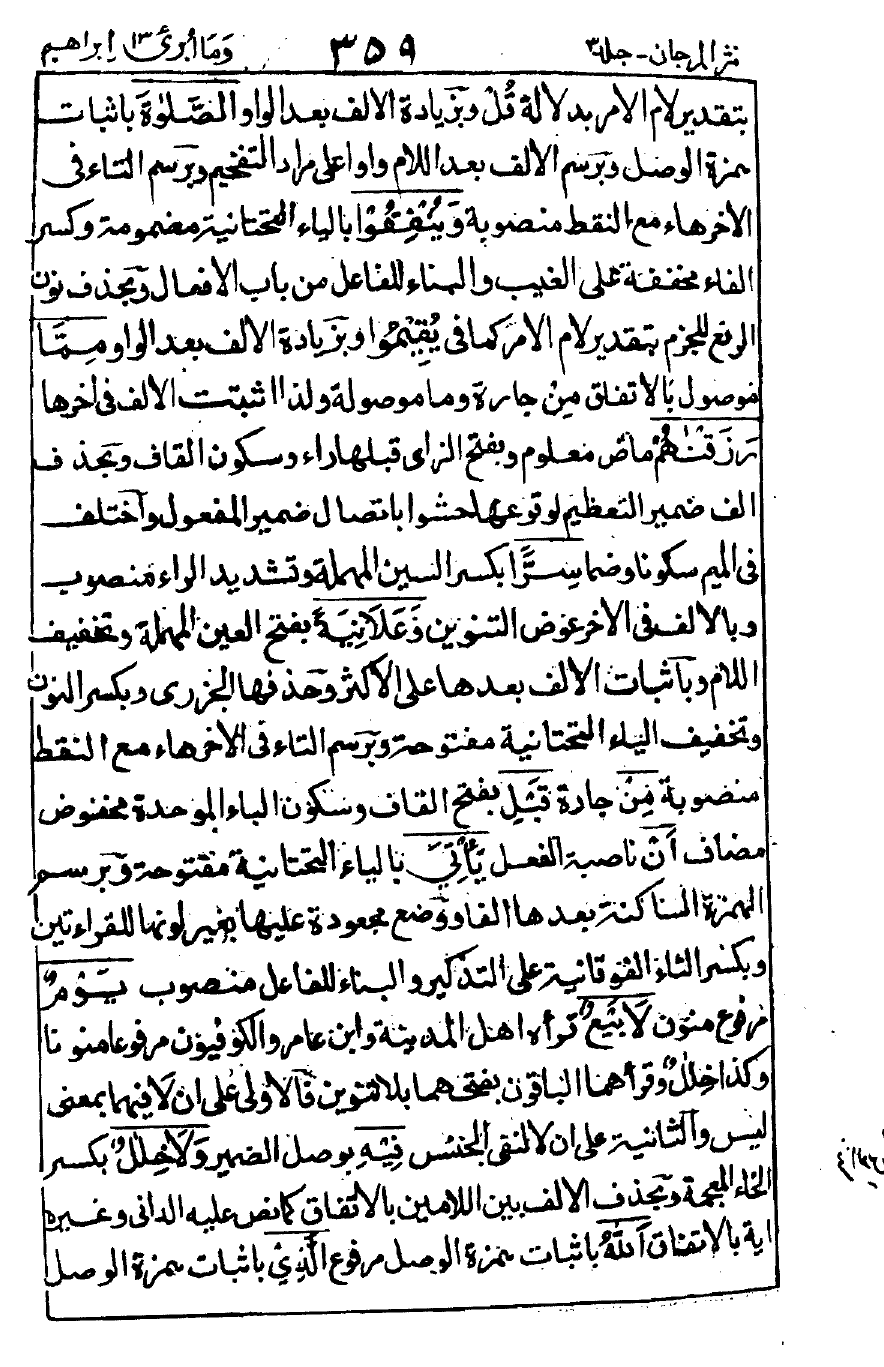 نثر المرجان - جلد ٣ ٣٥٩ وَمَا أُبَرِّئُ ١٣ إبراهيم
بتقدير لام الامر بدلالة قُلْ وبزيادة الالف بعد الواو الصَّلٰوةَ باثبات
همزة الوصل وبرسم الالف بعد اللام واوا على مراد التفخيم وبرسم التاء فى
الاخر هاء مع النقط منصوبة وَيُنْفِقُوْا بالياء التحتانية مضمومة وكسر
الفاء مخففة على الغيب والبناء للفاعل من باب الافعال وبحذف نون
الرفع للجزم بتقدير لام الامر كما فى يُقِيْمُوا وبزيادة الالف بعد الواو مِمَّا
موصول بالاتفاق مِنْ جارة وما موصولة ولذا اثبتت الالف فى اخرها
رَزَقْنٰهُمْ ماض معلوم وبفتح الزاى قبلها راء وسكون القاف وبحذف
الف ضمير التعظيم لوقوعها حشوا باتصال ضمير المفعول واختلف
فى الميم سكونا وضما سِرًّا بكسر السين المهملة وتشديد الراء منصوب
وبالالف فى الاخر عوض التنوين وَعَلَانِيَةً بفتح العين المهملة وتخفيف
اللام وباثبات الالف بعدها على الأكثر وحذفها الجزرى وبكسر النون
وتخفيف الياء التحتانية مفتوحة وبرسم التاء فى الاخر هاء مع النقط
منصوبة مِنْ جارة قَبْلِ بفتح القاف وسكون الباء الموحدة مخفوض
مضاف اَنْ ناصبة الفعل يَأْتِيَ بالياء التحتانية مفتوحة وبرسم
الهمزة الساكنة بعدها الفا ووضع مجعودة عليها بغير لونها للقراءتين
وبكسر التاء الفوقانية على التذكير والبناء للفاعل منصوب يَوْمٌ
مرفوع منون لَا بَيْعٌ قرأه اهل المدينة وابن عامر والكوفيون مرفوعا منونا
وكذا خِلٰلٌ وقرأهما الباقون بفتحهما بلا تنوين فالاولى على ان لا فيهما بمعنى
ليس والثانية على ان لا لنفى الجنس فِيْهِ بوصل الضمير وَلَا خِلٰلٌ بكسر
الخاء المعجمة وبحذف الالف بين اللامين بالاتفاق كما نص عليه الدانى وغيره
اية بالاتفاق اَللّٰهُ باثبات همزة الوصل مرفوع الَّذِيْ باثبات همزة الوصل